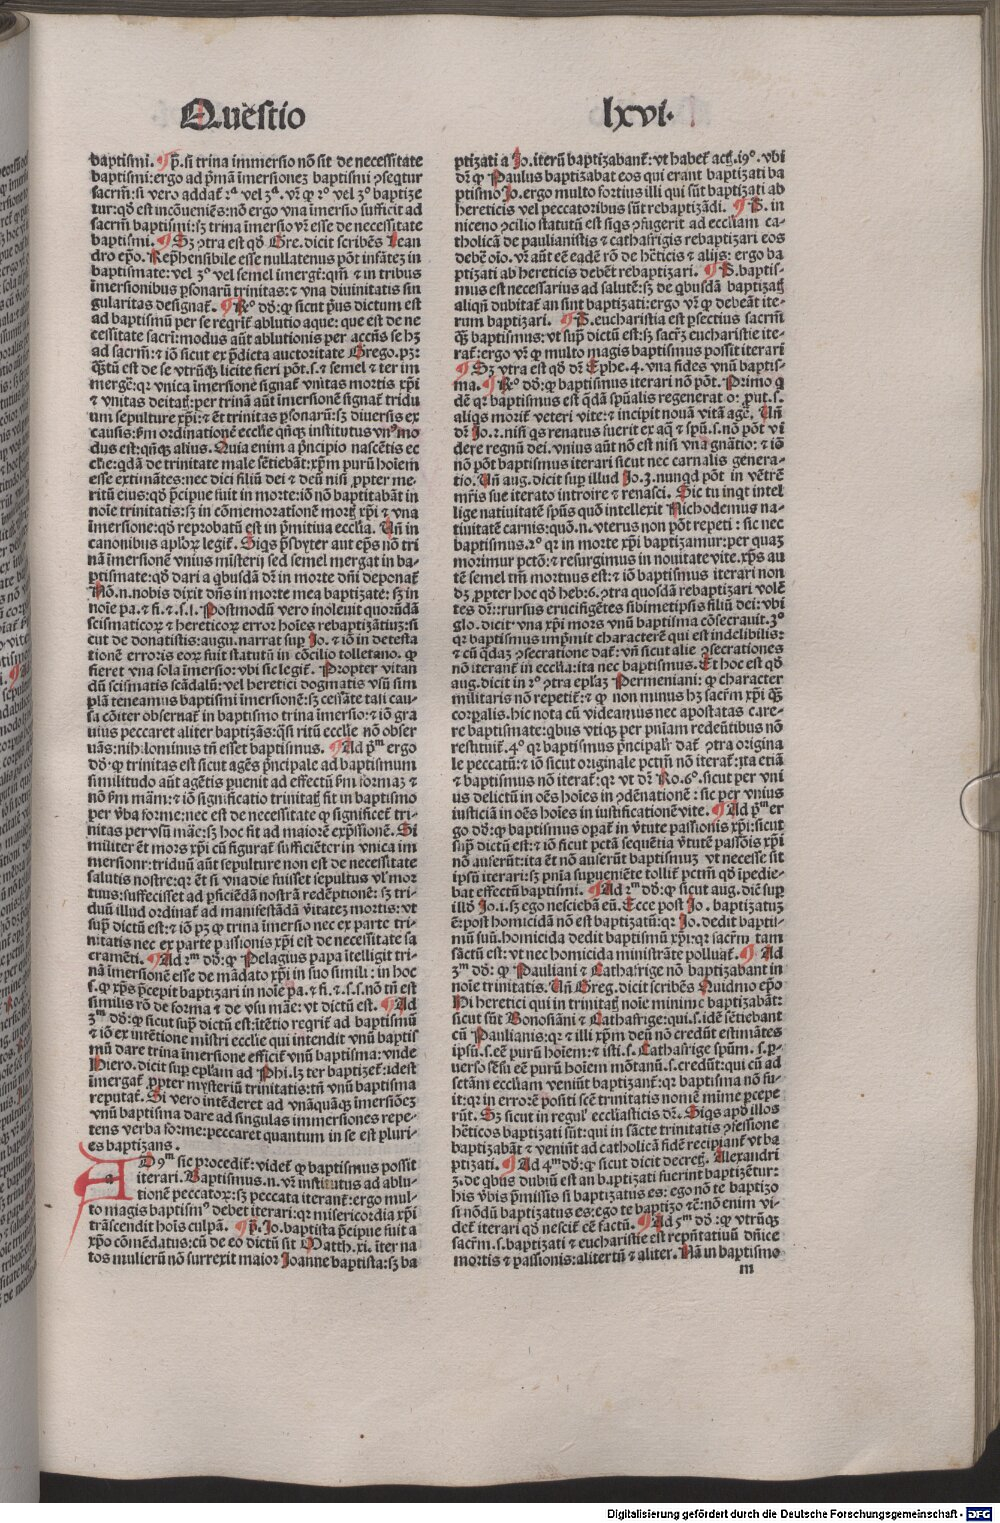 Questio lxvi.
baptismi. ¶ P̄. si trina imersio nō sit de necessitate
baptismi: ergo ad pͥmā imersionez baptismi ꝯseqtur
sacrm̄: si vero addat̄ 2ᵃ vel 3ᵃ. vr̄ ꝙ 2° vel 3° baptize
tur: qḋ est incōueniēs: nō ergo vna īmersio sufficit ad
sacrm̄ baptismi: sꝫ trina īmersio vr̄ esse de necessitate
baptismi. ¶ Sꝫ ꝯtra est qḋ Gre. dicit scribēs Lean
dro ep̄o. Rep̄hensibile esse nullatenus pōt infātez in
baptismate: vel 3° vel semel īmergt̄: qm̄ ⁊ in tribus
īmersionibus ꝑsonarū trinitas: ⁊ vna diuinitatis sin
gularitas designat̄. ¶ R° dō: ꝙ sicut pͥus dictum est
ad baptismū per se reqrit̄ ablutio aque: que est de ne
cessitate sacri: modus aūt ablutionis per accn̄s se hꝫ
ad sacrm̄: ⁊ iō sicut ex p̄dicta auctoritate Grego. pꝫ:
qꝫtū est de se vtrūqꝫ licite fieri pōt. s. ⁊ semel ⁊ ter im
mergē: qꝛ vnica īmersione signat̄ vnitas mortis xp̄i
⁊ vnitas deitatꝭ: per trinā aūt īmersionē signat̄ tridu
um sepulture xp̄i: ⁊ ēt trinitas ꝑsonarū: sꝫ diuersis ex
causis: ẜm ordinationē ecclie qn̄qꝫ institutus vn° mo
dus est: qn̄qꝫ alius. Quia enim a pͥncipio nascētis ec
clie: qdā de trinitate male sētiebāt: xp̄m purū hoiem
esse extimātes: nec dici filiū dei ⁊ deū nisi ꝓpter me-
ritū eius: qḋ pͥcipue fuit in morte: iō nō baptitabāt in
noīe trinitatis: sꝫ in cōmemorationē mortꝭ xp̄i ⁊ vna
īmersione: qḋ reprobatū est in pͥmitiua ecclia. Un̄ in
canonibus apl̄oꝝ legit̄. Siqs p̄sbyter aut ep̄s nō tri
nā īmersionē vnius misterij sed semel mergat in ba-
ptismate: qḋ dari a qbusdā dr̄ in morte dn̄i deponat̄
Nō. n. nobis dixit dn̄s in morte mea baptizate: sꝫ in
noīe pa. ⁊ fi. ⁊ .s. s. Postmodū vero inoleuit quorūdā
scismaticoꝝ ⁊ hereticoꝝ error hoīes rebaptizātiuꝫ: si
cut de donatistis: augu. narrat suꝑ Jo. ⁊ iō in detesta
tionē erroris eoꝝ fuit statutū in cōcilio tolletano. ꝙ
fieret vna sola īmersio: vbi sic legit̄. Propter vitan
dū scismatis scādalū: vel heretici dogmatis vsū sim
plā teneamus baptismi īmersionē: sꝫ cessāte tali cau-
sa cōiter obseruat̄ in baptismo trina īmersio: ⁊ iō gra
uius peccaret aliter baptizās: qͣsi ritū ecclie nō obser
uās: nihilominus tn̄ esset baptismus. ¶ Ad pͫ ergo
dō. ꝙ trinitas est sicut agēs pͥncipale ad baptismum
similitudo aūt agētis ꝑuenit ad effectū ẜm formaꝫ ⁊
nō ẜm mām: ⁊ iō significatio trinitatꝭ fit in baptismo
per v̄ba forme: nec est de necessitate ꝙ significet̄ tri-
nitas per vsū māe: sꝫ hoc fit ad maiorē exp̄ssionē. Si
militer ēt mors xp̄i cū figurat̄ sufficiēter in vnica im
mersione: triduū aūt sepulture non est de necessitate
salutis nostre: qꝛ ēt si vna die fuisset sepultus vl̄ mor
tuus: suffecisset ad ꝑficiēdā nostrā redēptionē: sꝫ tri-
duū illud ordinat̄ ad manifestādā v̄itatez mortis: vt
sup̄ dictū est: ⁊ iō pꝫ ꝙ trina īmersio nec ex parte tri-
nitatis nec ex parte passionis xp̄i est de necessitate sa
cramēti. ¶ Ad 2ͫ dō: ꝙ Pelagius papa ītelligit tri-
nā īmersionē esse de mādato xp̄i in suo simili: in hoc
s. ꝙ xp̄s p̄cepit baptizari in noīe pa. ⁊ fi. ⁊ .s. s. nō tn̄ est
similis rō de forma ⁊ de vsu māe: vt dictū est. ¶ Ad
3ͫ dō: ꝙ sicut sup̄ dictū est: ītētio reqrit̄ ad baptismū
⁊ iō ex intētione ministri ecclie qui intendit vnū baptis
mū dare trina īmersione efficit̄ vnū baptisma: vnde
Hiero. dicit suꝑ epl̄am ad Phi. lꝫ ter baptizet̄: idest
īmergat̄ ꝓpter mysteriū trinitatis: tn̄ vnū baptisma
reputat̄. Si vero intēderet ad vnāquāqꝫ īmersiōez
vnū baptisma dare ad singulas immersiones repe-
tens verba forme: peccaret quantum in se est pluri-
es baptizans.
AD 9ͫ sic procedit̄: videt̄ ꝙ baptismus possit
iterari. Baptismus. n. vr̄ institutus ad ablu-
tionē peccatoꝝ: sꝫ peccata iterant̄: ergo mul-
to magis baptism° debet iterari: qꝛ misericordia xp̄i
trāscendit hoīs culpā. ¶ P̄. Jo. baptista pͥcipue fuit a
xp̄o cōmēdatus: cū de eo dictū sit Matth. xi. īter na
tos mulierū nō surrexit maior Joanne baptista: sꝫ ba
ptizati a Jo. iterū baptizabant̄: vt habet̄ actꝭ. 19°. vbi
dr̄ ꝙ Paulus baptizabat eos qui erant baptizati ba
ptismo Jo. ergo multo fortius illi qui sūt baptizati ab
hereticis vel peccatoribus sūt rebaptizādi. ¶ P. in
niceno ꝯcilio statutū est siqs ꝯfugerit ad eccliam ca-
tholicā de paulianistis ⁊ catafrigis rebaptizari eos
debē oīo. vr̄ aūt eē eadē rō de hēticis ⁊ alijs: ergo ba
ptizati ab hereticis debēt rebaptizari. ¶ P. baptis-
mus est necessarius ad salutē: sꝫ de qbusdā baptizatꝭ
aliqn̄ dubitat̄ an sint baptizati: ergo vr̄ ꝙ debeāt ite-
rum baptizari. ¶ P. eucharistia est ꝑfectius sacrm̄
qꝫ baptismus: vt sup̄ dictū est: sꝫ sacrm̄ eucharistie ite-
rat̄: ergo vr̄ ꝙ multo magis baptismus possit iterari
¶ Sꝫ ꝯtra est qḋ dr̄ Ephe. 4. vna fides vnū baptis-
ma. ¶ R° dō: ꝙ baptismus iterari nō pōt. Primo q
dē qꝛ baptismus est qdā spūalis regeneratio: put. s.
aliqs morit̄ veteri vite: ⁊ incipit nouā vitā agē. Un̄
dr̄ Jo. 2. nisi qs renatus fuerit ex aq ⁊ spū. s. nō pōt vi
dere regnū dei. vnius aūt nō est nisi vna gnātio: ⁊ iō
nō pōt baptismus iterari sicut nec carnalis genera-
tio. Un̄ aug. dicit suꝑ illud Jo. 3. nunqd pōt in vētrē
mr̄is sue iterato introire ⁊ renasci. Sic tu inqt intel
lige natiuitatē spūs quō intellexit Nichodemus na-
tiuitatē carnis: quō. n. vterus non pōt repeti: sic nec
baptismus. 2° qꝛ in morte xp̄i baptizamur: per quaꝫ
morimur pctō: ⁊ resurgimus in nouitate vite. xp̄s au
tē semel tm̄ mortuus est: ⁊ iō baptismus iterari non
dꝫ ꝓpter hoc qḋ heb: 6. ꝯtra quosdā rebaptizari volē
tes dr̄:: rursus crucifigētes sibimetipsis filiū dei: vbi
glo. dicit: vna xp̄i mors vnū baptisma cōsecrauit. 3°
qꝛ baptismus impͥmit characterē qui est indelibilis:
⁊ cū qdaꝫ ꝯsecratione dat̄: vn̄ sicut alie ꝯsecrationes
nō iterant̄ in ecclia: ita nec baptismus. Et hoc est qḋ
aug. dicit in 2° ꝯtra epl̄aꝫ Permeniani: ꝙ character
militaris nō repetit̄: ⁊ ꝙ non minus hꝫ sacrm̄ xp̄i qꝫ
corꝑalis. hic nota cū videamus nec apostatas care-
re baptismate: qbus vtiqꝫ per pn̄iam redeūtibus nō
restituit̄. 4° qꝛ baptismus pͥncipalr̄ dat̄ ꝯtra origina
le peccatū: ⁊ iō sicut originale pctm̄ nō iterat̄: ita etiā
⁊ baptismus nō iterat̄: qꝛ vt dr̄ Ro. 6°. sicut per vni
us delictū in oēs hoīes in ꝯdēnationē: sic per vnius
iusticiā in oēs hoīes in iustificationē vite. ¶ Ad pͫ er-
go dō: ꝙ baptismus oꝑat̄ in v̄tute passionis xp̄i: sicut
sup̄ dictū est: ⁊ iō sicut pctā sequētia v̄tutē passiōis xp̄i
nō auferūt: ita ēt nō auferūt baptismuꝫ vt necesse sit
ipsū iterari: sꝫ pn̄ia supueniēte tollit̄ pctm̄ qḋ ipedie-
bat effectū baptismi. ¶ Ad 2ͫ dō: ꝙ sicut aug. dic̄ suꝑ
illḋ Jo. i. sꝫ ego nesciebā eū. Ecce post Jo. baptizatuꝫ
ē: post homicidā nō est baptizatū: qꝛ Jo. dedit baptis-
mū suū. homicida dedit baptismū xp̄i: qꝛ sacrm̄ tam
sāctū est: vt nec homicida ministrāte polluat̄. ¶ Ad
3ͫ dō: ꝙ Pauliani ⁊ Catafrige nō baptizabant in
noīe trinitatis. Un̄ Greg. dicit scribēs Quidmo ep̄o
Hi heretici qui in trinitatꝭ noīe minime baptizabāt̄:
sicut sūt Bonosiāni ⁊ Catafrige: qui. s. idē sētiebant
cū Paulianis: qꝛ ⁊ illi xp̄m deū nō credūt estimātes
ipsū. s. eē purū hoīem: ⁊ isti. s. Catafrige spūm. s. ꝑ-
uerso sēsu eē purū hoiem mōtanū. s. credūt: qui cū ad
sctam eccliam veniūt baptizant̄: qꝛ baptisma nō fu-
it: qꝛ in errorē positi scē trinitatis nomiē mime ꝑcepe
rūt. Sꝫ sicut in regul̄ eccliasticis dr̄. Siqs apḋ illos
hēticos baptizati sūt: qui in sācte trinitatis ꝯfessione
baptizabāt̄ ⁊ veniūt ad catholicā fidē recipiant̄ vt ba
ptizati. ¶ Ad 4ͫ dō: ꝙ sicut dicit decreꝭ. Alexandri
3. de qbus dubiū est an baptizati fuerint baptizētur:
his v̄bis p̄missis si baptizatus es: ego nō te baptizo
si nōdū baptizatus es: ego te baptizo ⁊c̄: nō enim vi-
det̄ iterari qḋ nescit̄ eē factū. ¶ Ad 5ͫ dō: ꝙ vtrūqꝫ
sacrm̄. s. baptizati ⁊ eucharistie est rep̄n̄tatiuū dn̄ice
mortis ⁊ passionis: aliter tn̄ ⁊ aliter. Nā in baptismo
m
Digitalisierung gefördert durch die Deutsche Forschungsgemeinschaft - DFG